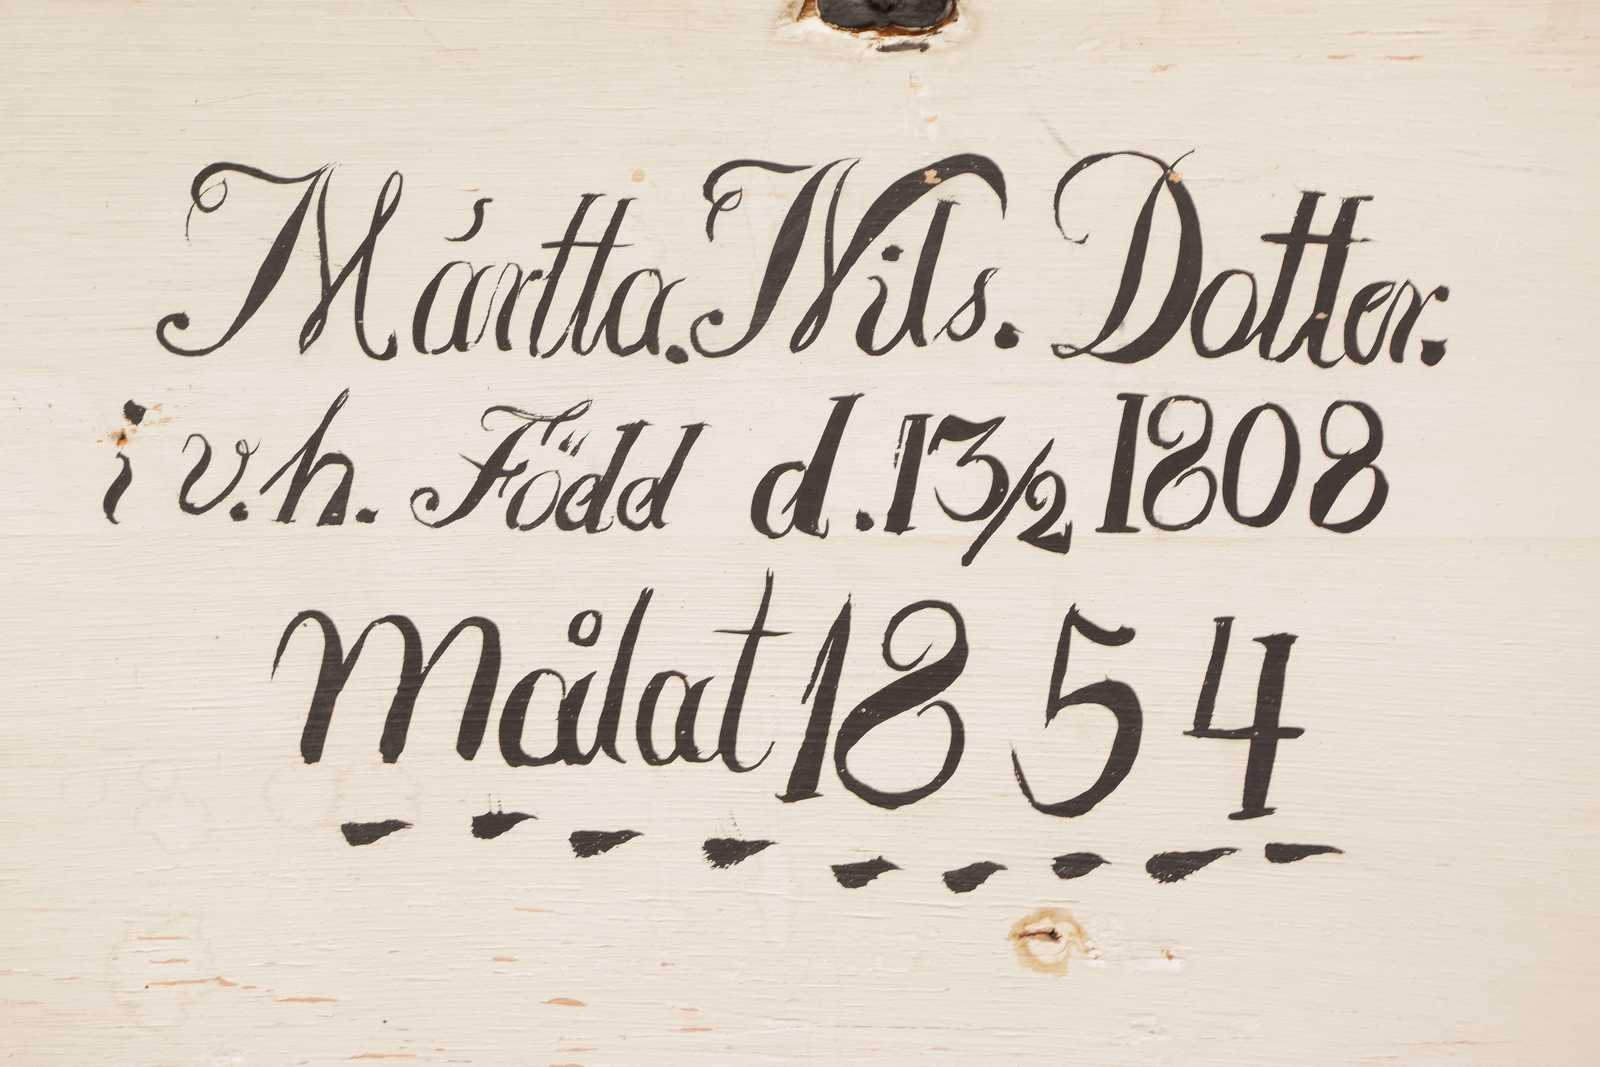 Mártta. Nils. Dotter.
i v. h. Född d. 13/2 1808
målat 1854